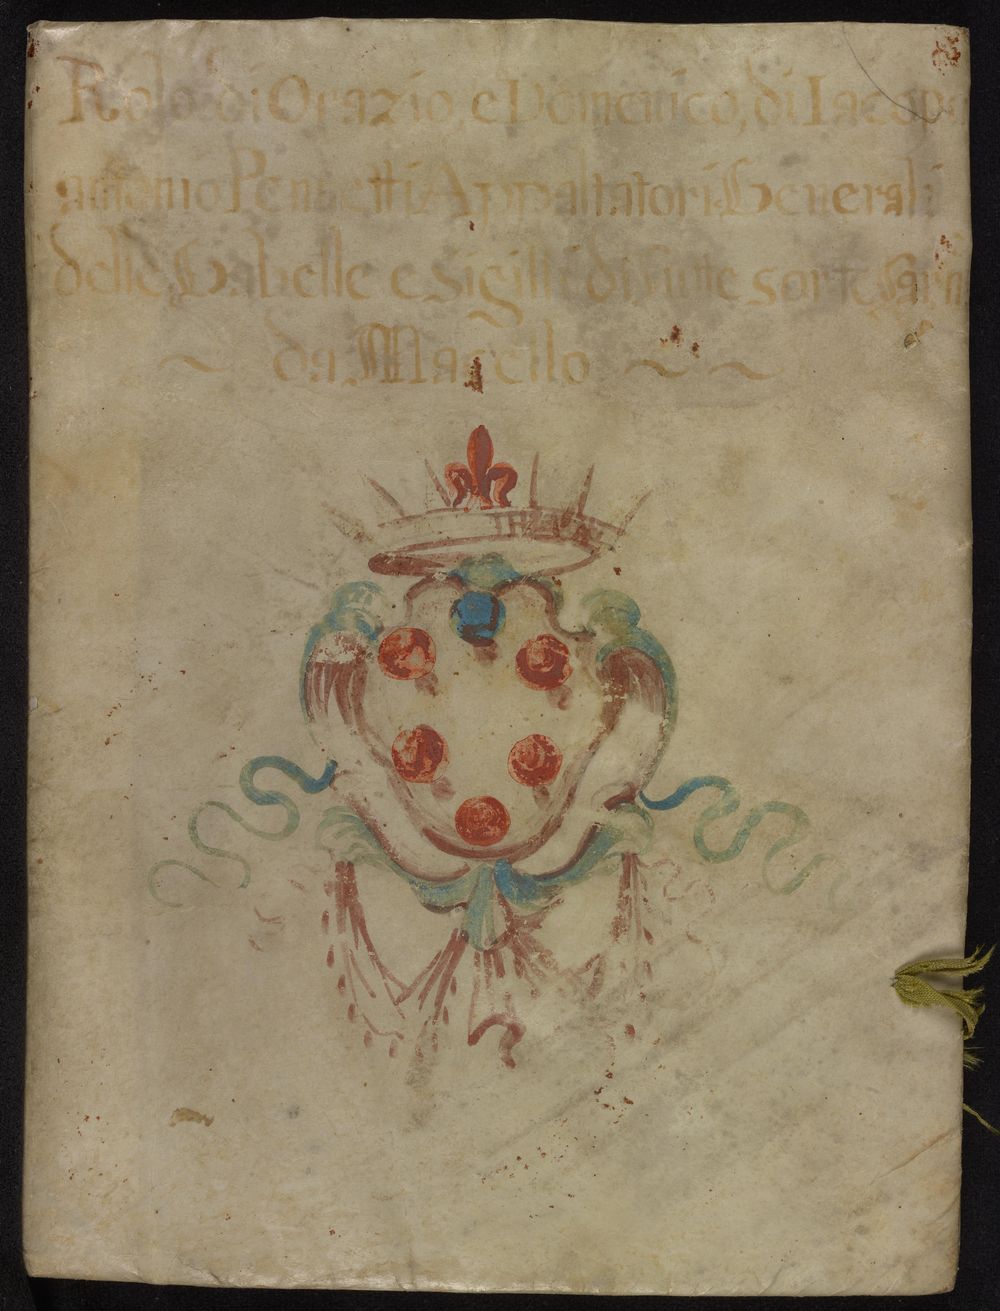 Rolo di Orazio, e Domenico, di Iacopo
antonio Pennetti Appaltatori Generali
delle Gabelle e Sigilli di tutte sorte Carni
da Macello